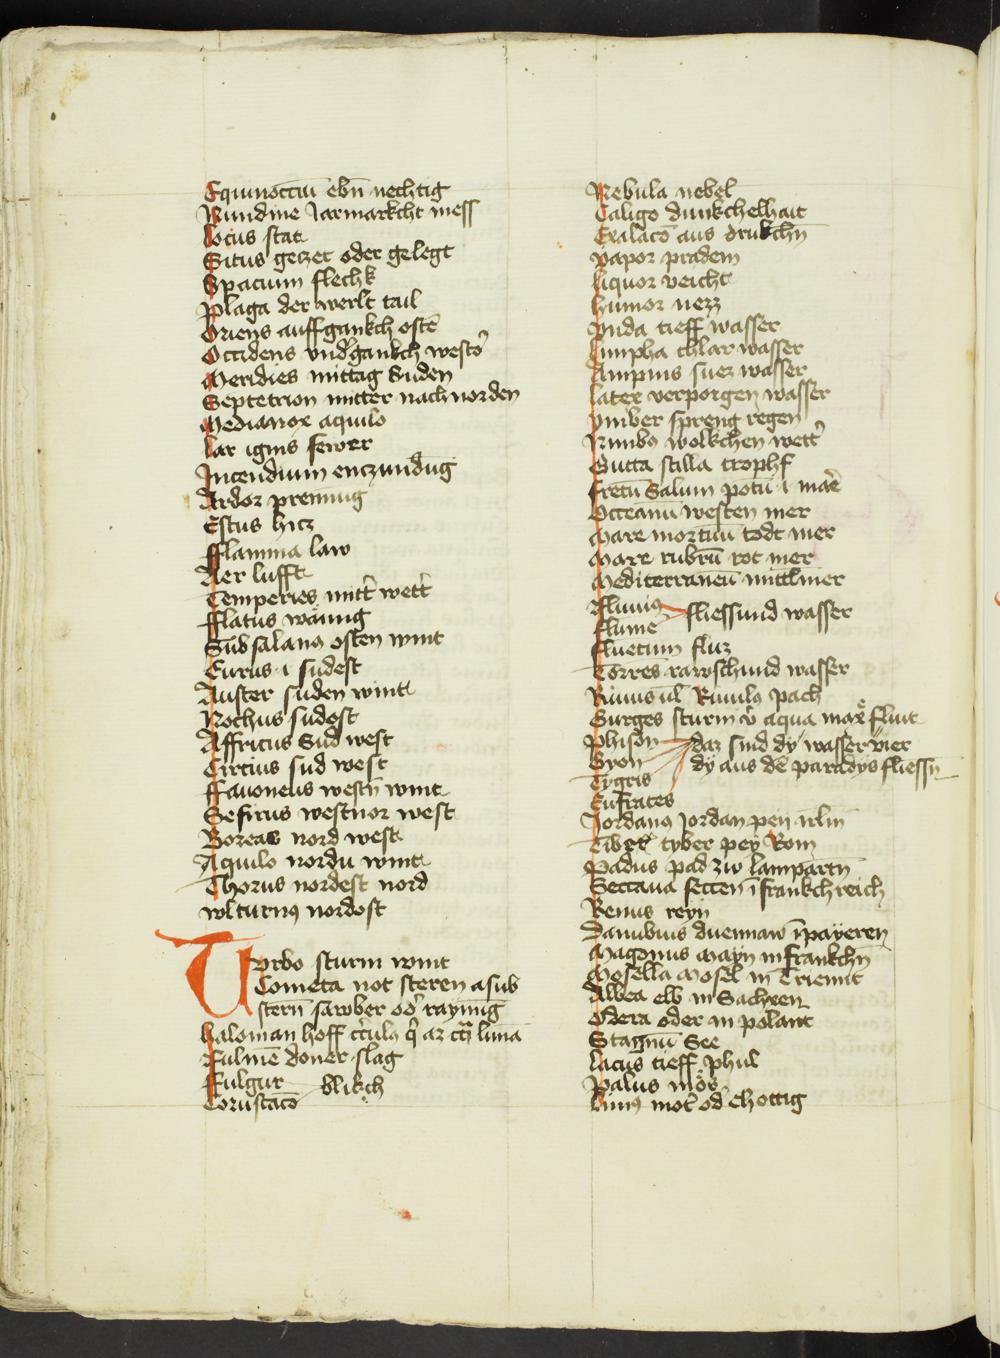 Equinocciū ebn̄ nechtig
Nundine Jarmarkcht mess
Locus stat
Situs geczet oder gelegt
Spacium flechk
Plaga der werlt tail
Oriens auffgankch ostē
Occidens vnd'gankch westō
Meridies mittag Suden
Septetrion mitter nach norden
Medianox aquilo
Lar ignis fewer
Incendium enczundūg
Ardor prenung
Estus hicz
Fflamma law
Aer lufft
Temperies mitt' wett'
Fflatus wäung
Sūbsalanꝰ osten wint
Eurus i sudest
Auster suden wint
Nochus sudost
Affricus Sud west
Circius sud west
Ffauoneus westn̄ wint
Sefirus westnor west
Boreas nord west
Aquilo nordu wint
Chorus nordest nord
wlturnꝰ nordost
Turbo sturm wint
Cometa not steren a sub
stern̄ sawber od' raynūg
haloman hoff
Fulmē doner slag
Fulgur blikch
Coruscacō
Nebula nebel
Caligo dunkchelhait
Exalacō aus drukchn̄
Vapor pradem
Liquor veicht
humor nezz
Vnda tieff wasser
Limpha chlar wasser
Ampnis suez wasser
Latex verporgen wasser
Ymber spreng regen
Nimbꝰ wolkchen wett'
Gutta stilla trophf
Fretū Salum potū i marē
Occeanū westen mer
Mare mortuū todt mer
Mare rubrū rot mer
Mediterraneū mittlmer
Fluuiꝰ fliessund wasser
flume
Fluctum fluz
Torrēs rawschund wasser
Riuus ul Riuulꝰ pach
Gurges sturm aqua
Phison daz sind dy wasser vier
Gyon dy aus dē paradys fliessn̄
Tygris
Eufrates
Jordanꝰ Jordan pey irlm̄
Tibris tyber pey Rom
Padus pad zw lampartn̄
Seccana secten ī frankchreich
Renus reyn
Danubius duennaw ī payeren
Magonus mayn in frankchn̄
Mosella Mosel in Triennt
Albea elb in Sachxen
Odera oder in polant
Stagnū See
Lacus tieff phul
Palus mos
Limꝰ mot' od' chottig